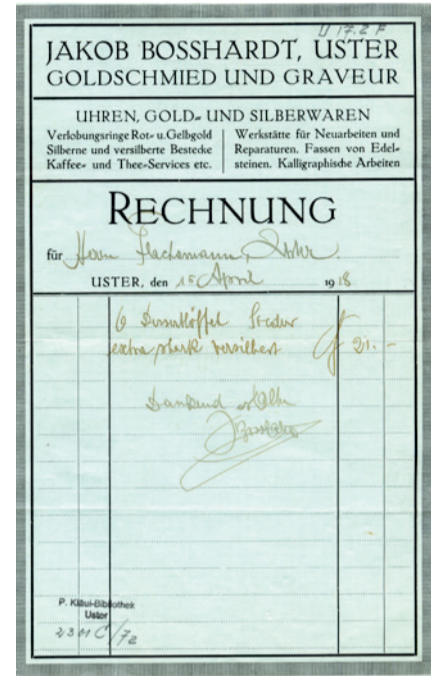 U 17.2 F
JAKOB BOSSHARDT, USTER
GOLDSCHMIED UND GRAVEUR
UHREN, GOLD= UND SILBERWAREN
Verlobungsringe Rot= u. Gelbgold
Silberne und versilberte Bestecke
Kaffee= und Thee=Services etc.
Werkstätte für Neuarbeiten und
Reparaturen. Fassen von Edel=
steinen. Kalligraphische Arbeiten
RECHNUNG
für Herrn Flachsmann, Uster.
USTER, den 15 April 1918
6 Dessertlöffel
extra stark versilbert 21.-
Dankend erhalten
JBosshardt
P. Kläui-Bibliothek
Uster